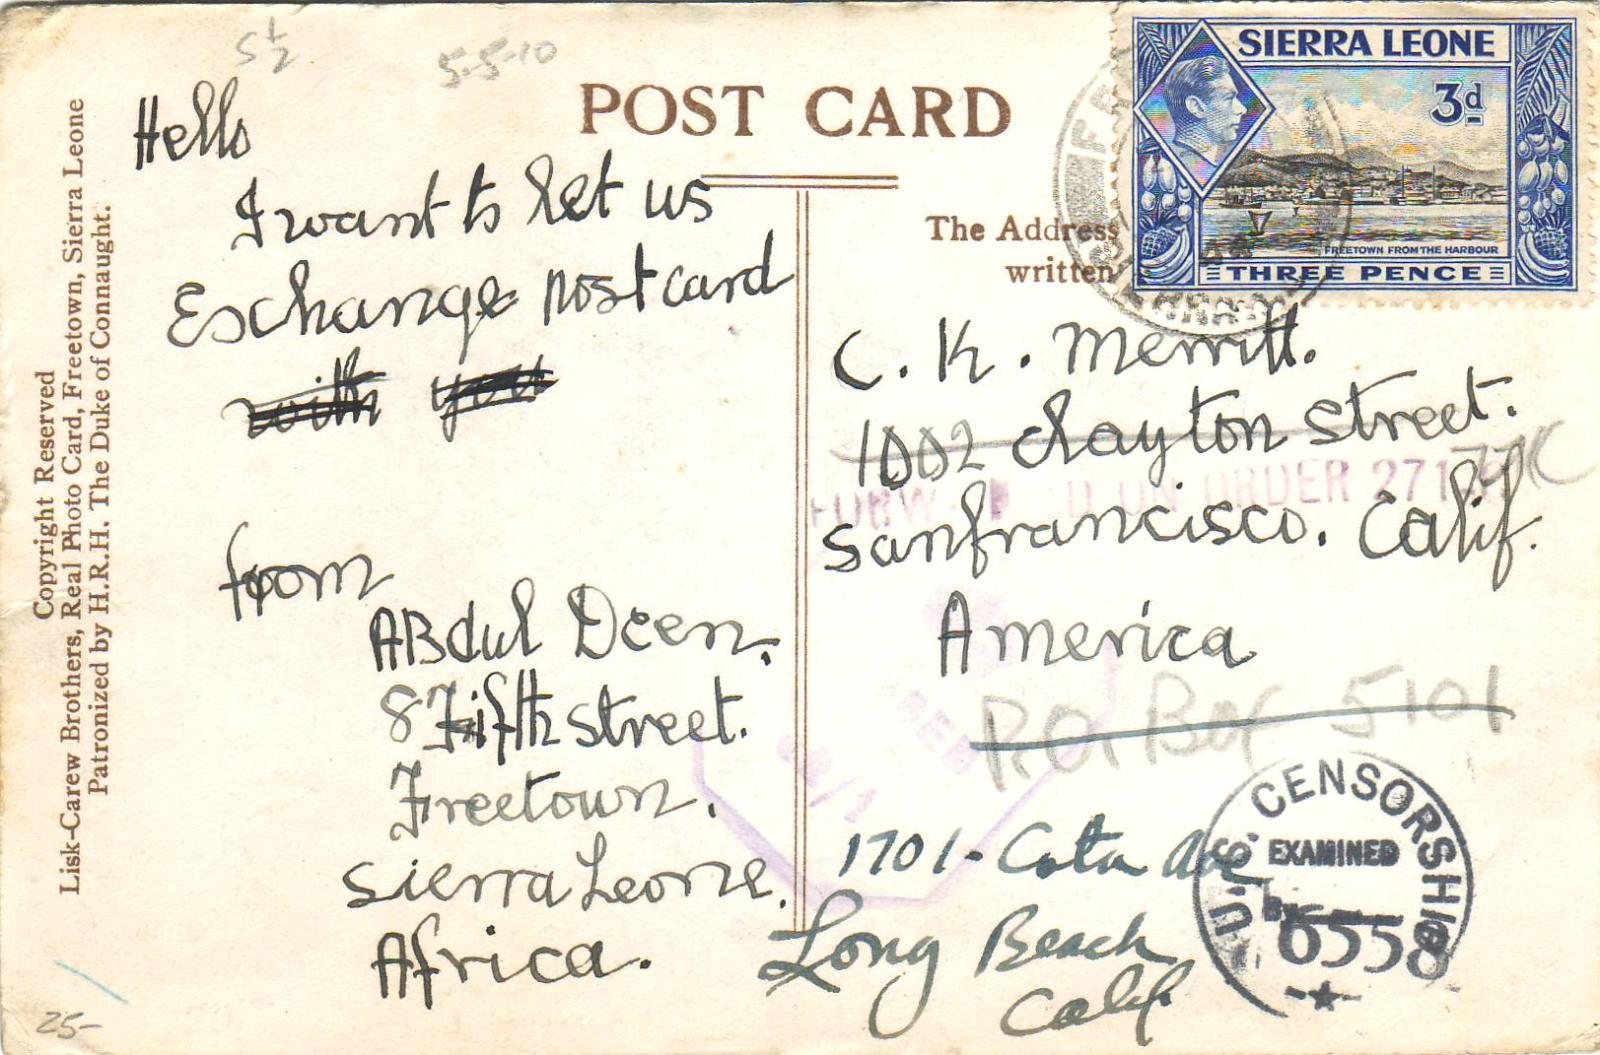 5½
5-5-10
POST CARD
Copyright Reserved
Lisk-Carew Brothers, Real Photo Card, Freetown, Sierra Leone
Patronized by H.R.H. The Duke of Connaught.
Hello
I want to let us
Exchange postcard
with you
from
ABdul Deen.
8 Fifth street.
Freetown.
Sierra Leone.
Africa.
25-
SIERRA LEONE
3d
FREETOWN FROM THE HARBOUR
THREE PENCE
The Address
written
C. K. Merritt.
1002 Clayton Street.
FORW D ON ORDER 271
Sanfrancisco. Calif.
America
P.O. Box 5101
1701- Ave
Long Beach
Calif
U.S. CENSORSHIP
EXAMINED
By 6558